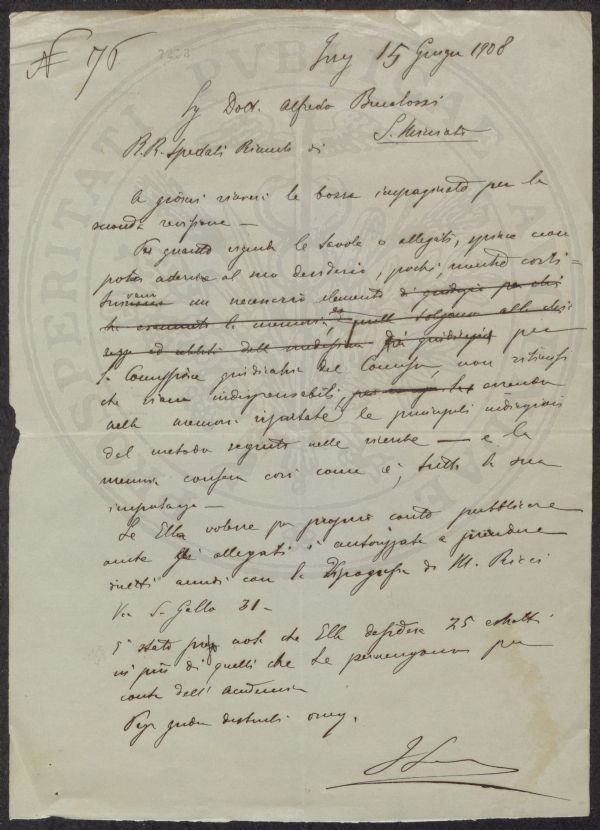 N 76
15 Giugno 1908
Sig Dott. Alfredo
S. Miniato
R.R. Spedali Riuniti di
A giorni riceverà le bozze impaginate per la
seconda revisione —
Per quanto riguarda le tavole o allegati, spiace non
poter aderire al suo desiderio, poichè, mentre costi=
un necessario elemento di giudizio per chi
la memoria
per
la Commissione giudicatrice del Concorso, non
che siano indispensabili, essendo
nella memoria riportate le principali indicazioni
del metodo seguito nelle ricerche — e la
memoria conserva così come è, tutta la sua
importanza —
Se Ella volesse per proprio conto pubblicare
anche gli allegati si a prendere
diretti accordi con la Tipografia di M. Ricci
Via S. Gallo 31 —
È stato preso nota che Ella desidera 25 estratti
in più di quelli che Le pervengono per
conto dell' Accademia